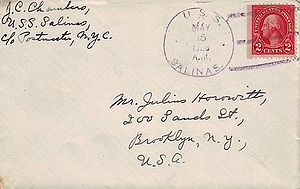 J.C. Chambers,
U.S.S. Salinas,
c/o Postmaster, N.Y.C.
U.S.S.
MAY
15
A.M.
SALINAS.
2 CENTS 2
Mr. Julius Horowitt,
200 Sands St.,
Brooklyn, N.Y.,
U.S.A.